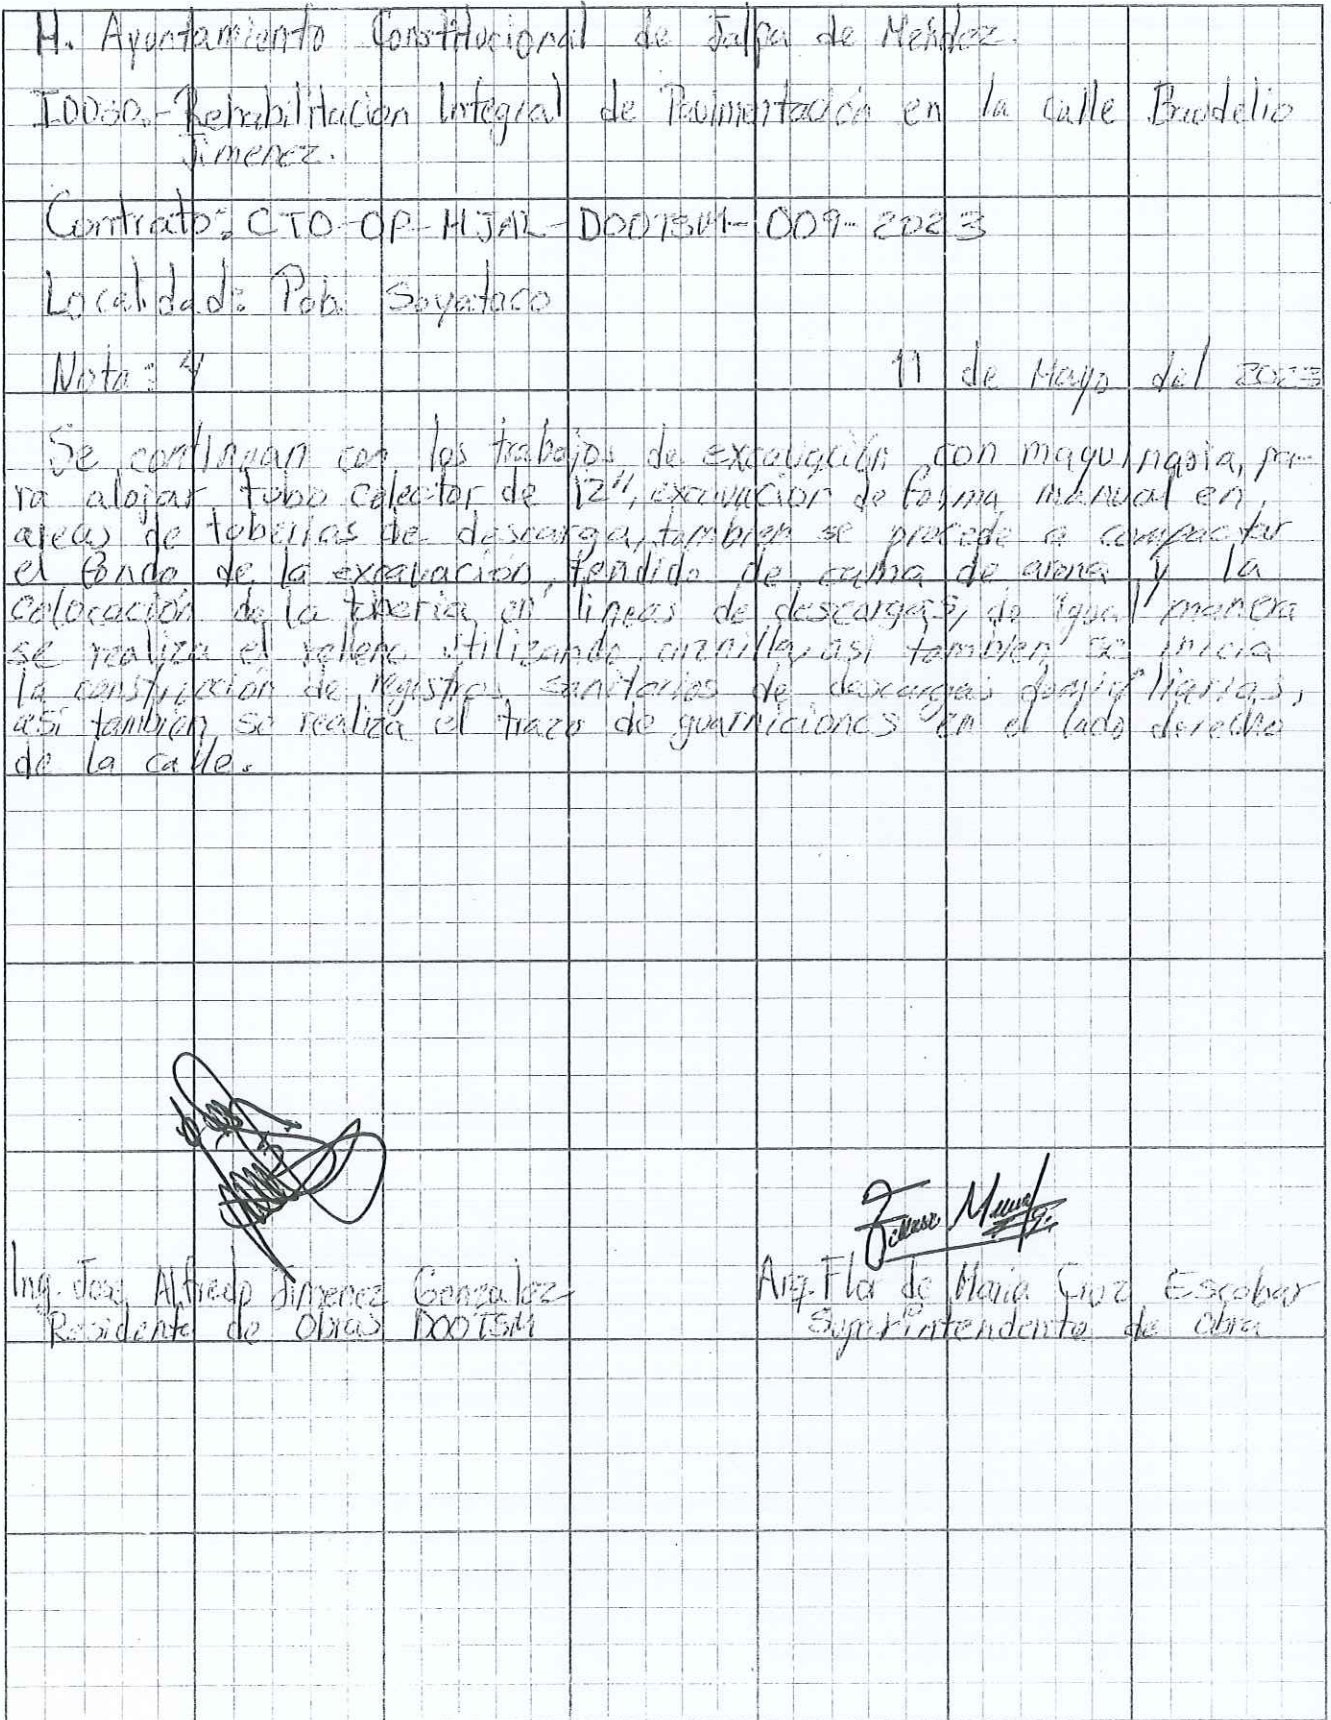 H. Ayuntamiento Constitucional de Jalpa de Mendez.
Rehabilitación Integral de Pavimentación en la calle Baudelio
Jimenez.
Contrato: CTO-OP-HJAL-DOOTSM-009-2023
Localidad: Pob. Soyataco
Nota: 4
11 de Mayo del 2023
Se continuan con los trabajos de excavación con maquinaria, pa-
ra alojar tubo colector de 12", excavación de forma manual en
areas de tuberias de descarga, tambien se procede a compactar
el fondo de la excavación, tendido de cama de arena y la
colocación de la tuberia en lineas de descargas, de igual manera
se realiza el relleno utilizando arenilla, asi tambien se inicia
la construcción de registros sanitarios de descargas domiciliarias,
asi tambien se realiza el trazo de guarniciones en el lado derecho
de la calle.
Ing. Jose Alfredo Jimenez Gonzalez
Residente de Obras DOOTSM
Arq. Flor de Maria Cruz Escobar
Superintendente de Obra